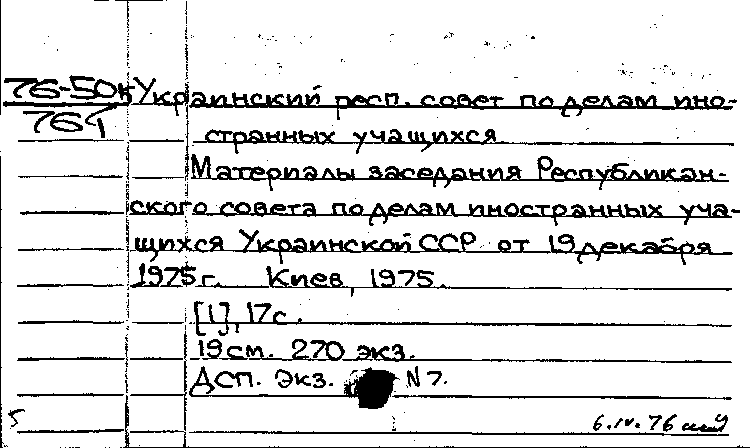 76-50к Украинский респ. совет по делам ино-
764 странных учащихся
Материалы заседания Республикан-
ского совета по делам иностранных уча-
щихся Украинской ССР от 19 декабря
1975 г. Киев, 1975.
[1], 17 с.
19 см. 270 экз.
ДСП. Экз. N 7.
5 6.IV.76